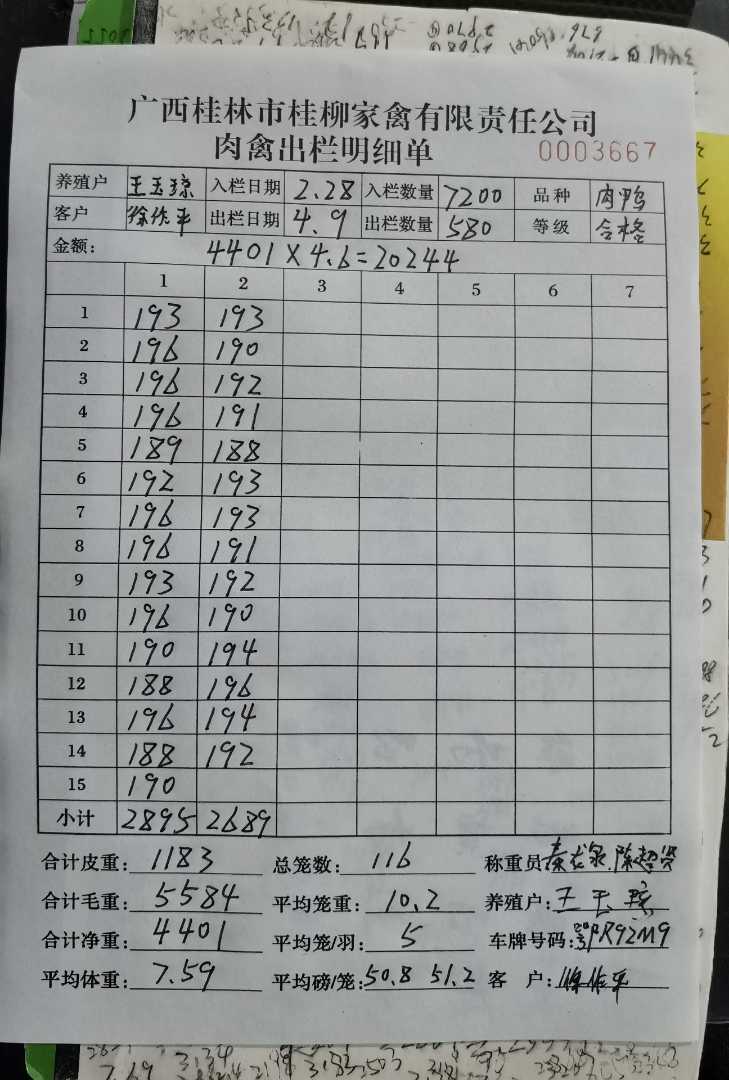 广西桂林市桂柳家禽有限责任公司
肉禽出栏明细单 0003667
养殖户 王玉琼 入栏日期 2.28 入栏数量 7200 品种 肉鸭
客户 徐作平 出栏日期 4.9 出栏数量 580 等级 合格
金额: 4401×4.6=20244
1 2 3 4 5 6 7
1 193 193
2 196 190
3 196 192
4 196 191
5 189 188
6 192 193
7 196 193
8 196 191
9 193 192
10 196 190
11 190 194
12 188 196
13 196 194
14 188 192
15 190
小计 2895 2689
合计皮重: 1183 总笼数: 116 称重员
合计毛重: 5584 平均笼重: 10.2 养殖户: 王玉琼
合计净重: 4401 平均笼/羽: 5 车牌号码: PR92M9
平均体重: 7.59 平均磅/笼: 50.8 51.2 客户: 徐作平